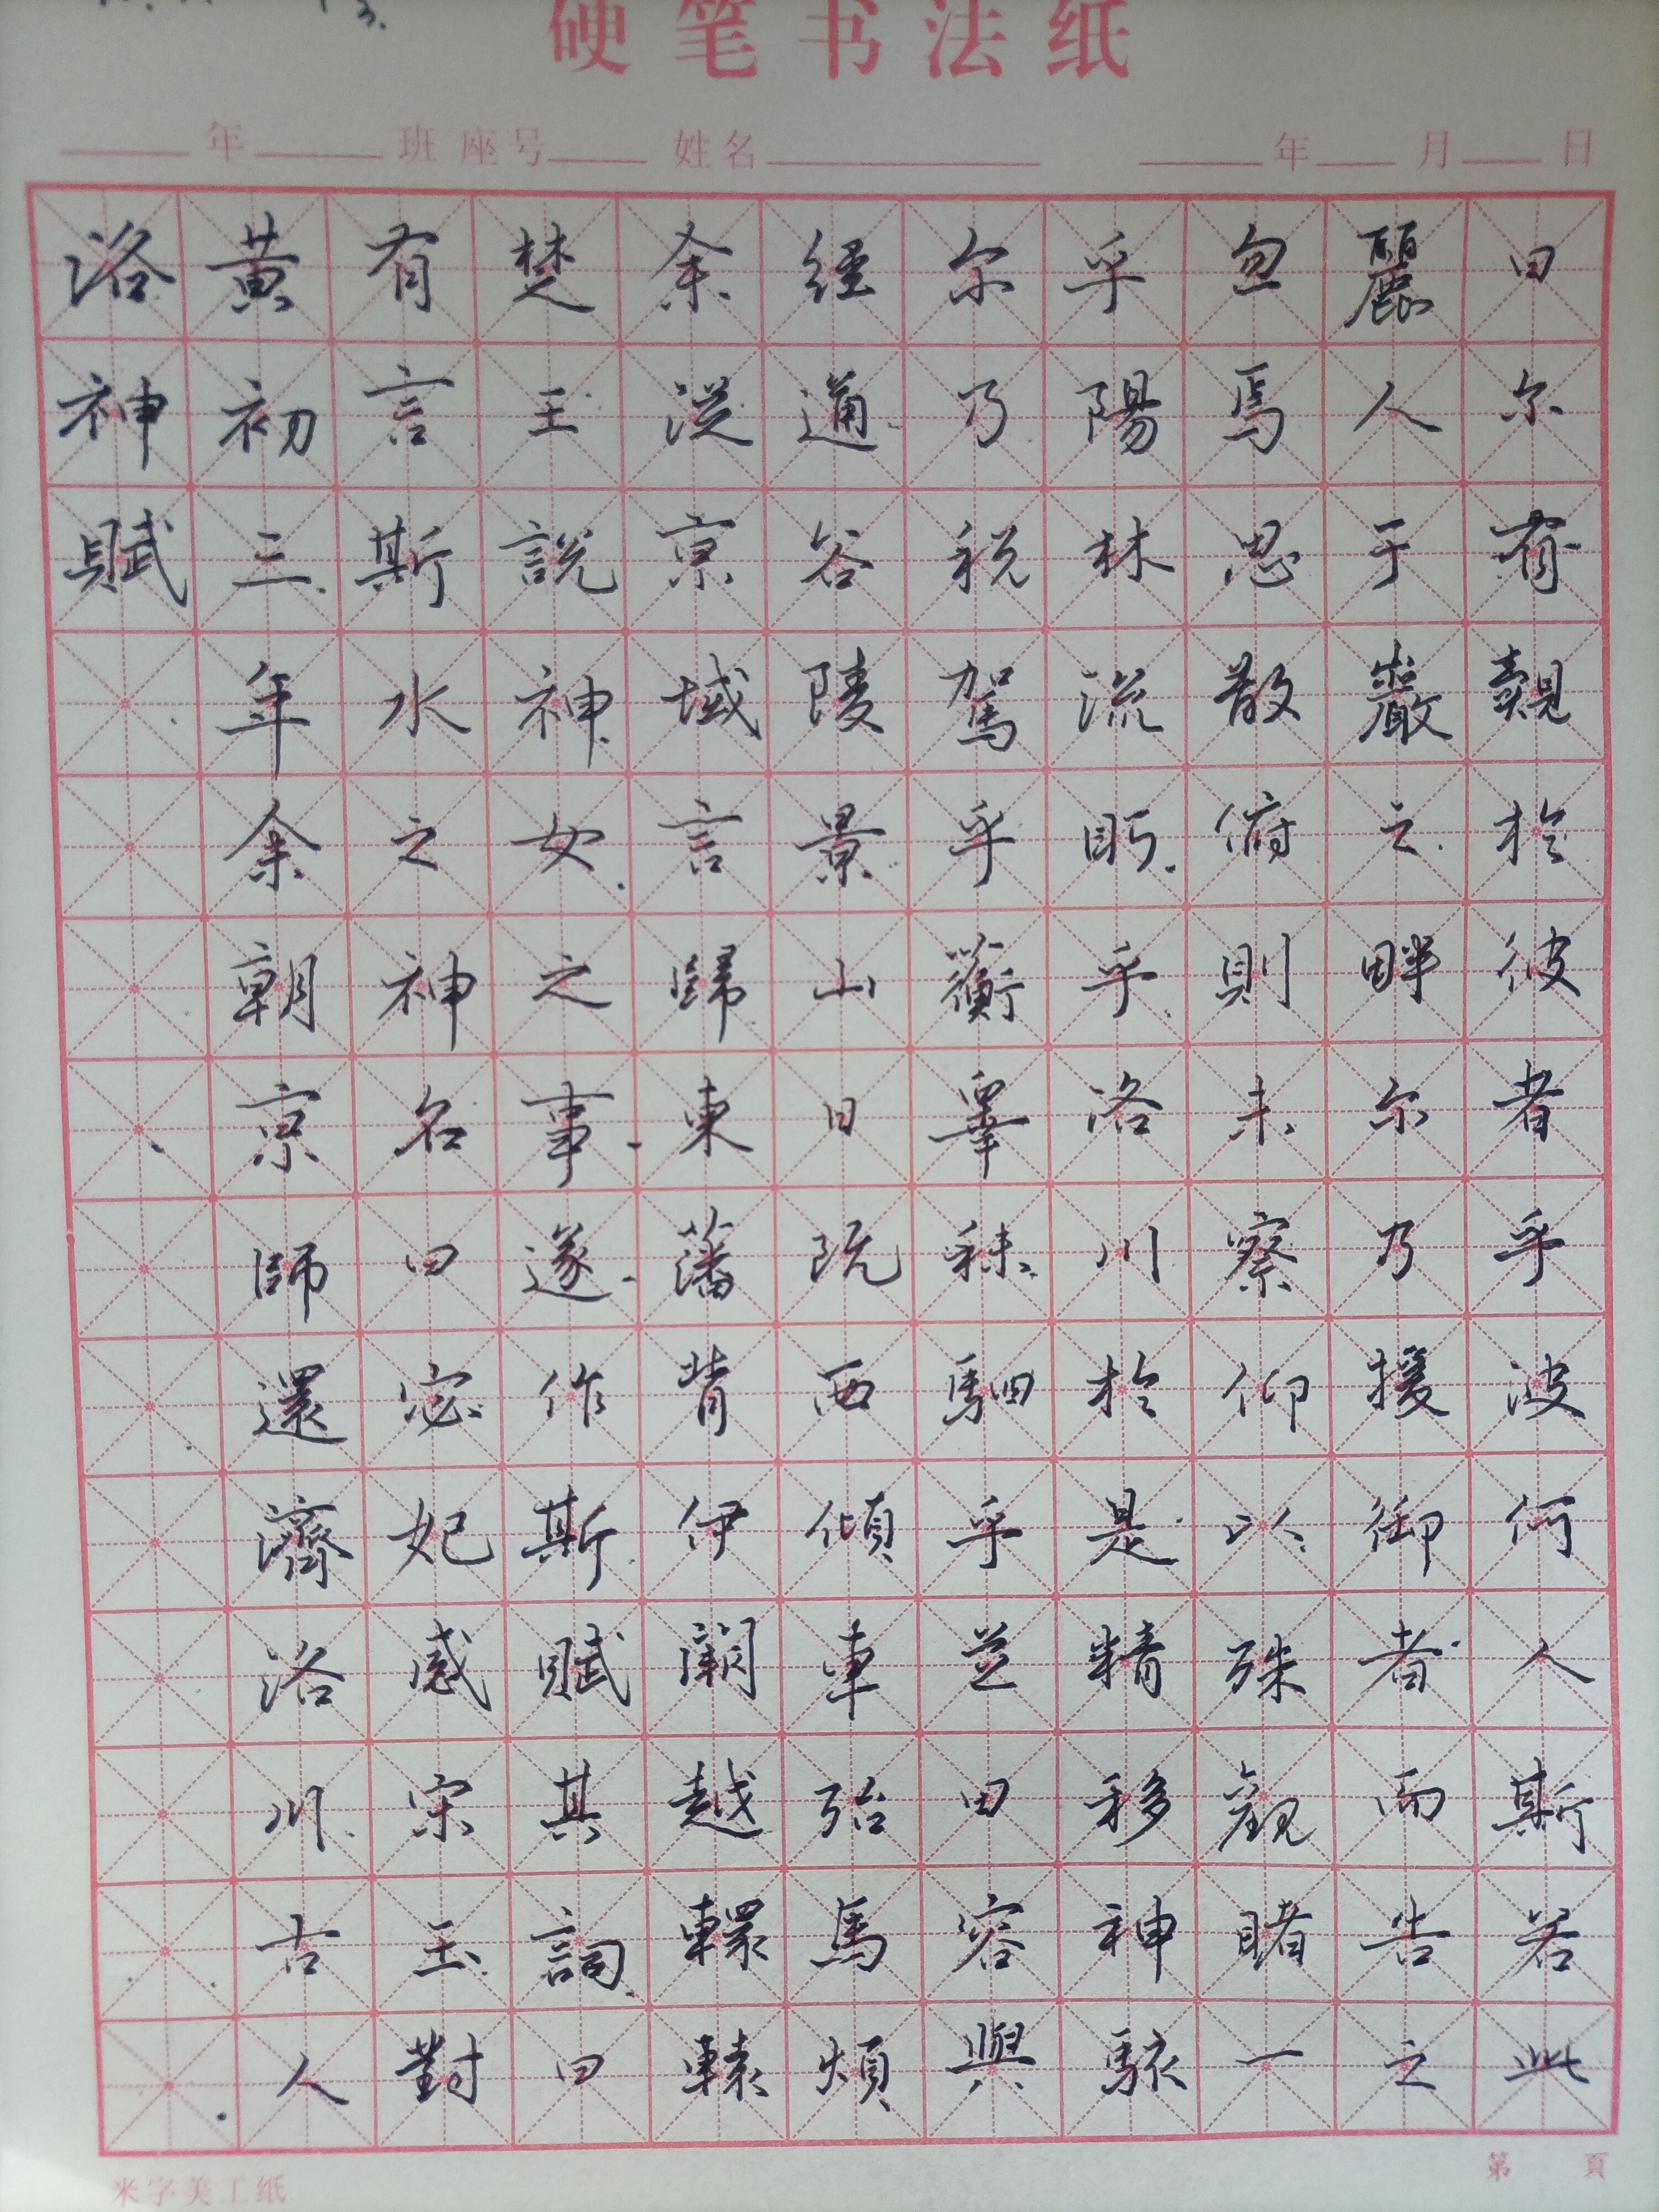 硬笔书法纸
年 班 座号 姓名 年 月 日
洛神賦
黄初三年余朝京師還濟洛川古人
有言斯水之神名曰宓妃感宋玉對
楚王說神女之事遂作斯賦其詞曰
余従京域言歸東藩背伊闕越轘轅
經通谷陵景山日既西傾車殆馬煩
尔乃税駕乎蘅皋秣駟乎芝田容與
乎陽林流眄乎洛川於是精移神駭
忽焉思散俯則未察仰以殊觀睹一
麗人于巖之畔尔乃援御者而告之
曰尔有覿於彼者乎波何人斯若此
米字美工纸
第 頁